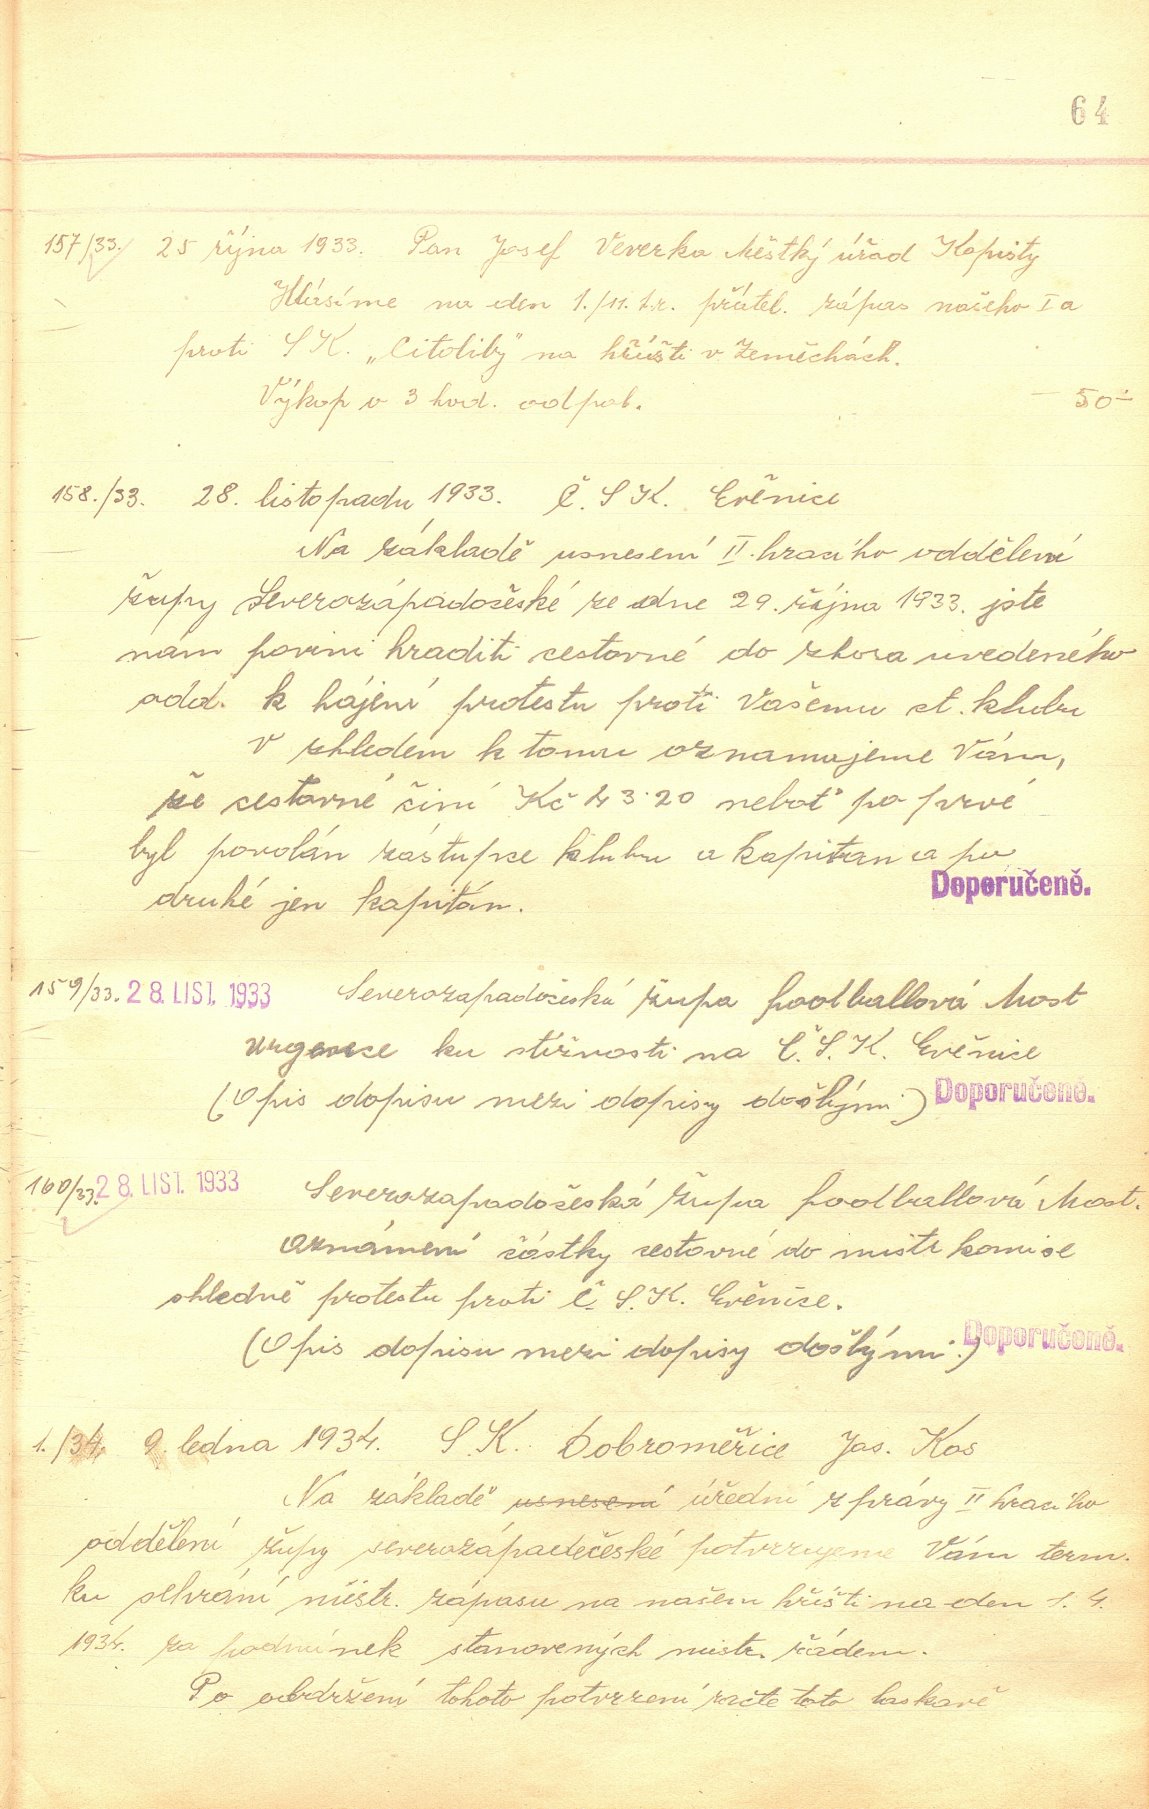 64
157/33. 25 října 1933. Pan Josef Veverka Městký úřad Kopisty
Hlásíme na den 1./11. t.r. přátel. zápas našeho I a
proti S K. „Citoliby" na hřišti v Zeměchách.
Výkop v 3 hod. odpol. — 50 —
158./33. 28. listopadu 1933. Č. S K. Evěnice
Na základě usnesení II. hracího oddělení
župy Severozápadočeské ze dne 29. října 1933. jste
nám povini hraditi cestovné do shora uvedeného
odd. k hájení protestu proti Vašemu ct. klubu
V zhledem k tomu oznamujeme Vám,
že cestovné činí Kč 43·20 neboť po prvé
byl povolán zástupce klubu a kapitan a po
druhé jen kapitán. Doporučeně.
159/33. 28. LIST. 1933 Severozapadočeská župa footballová Most
urgence ku stížnosti na Č. S. K. Evěnice
(Opis dopisu mezi dopisy došlými.) Doporučeně.
160/33. 28. LIST. 1933 Severozapadočeská župa footballová Most.
oznámení částky cestovné do mistr komise
ohledně protestu proti Č. S. K. Evěnice.
(Opis dopisu mezi dopisy došlými.) Doporučeně.
1./34. 9. ledna 1934. S K. Dobroměřice Jos. Kos
Na základě usnesení úřední zprávy II hracího
oddělení župy severozápadečeské potvrzujeme Vám term.
ku sehrání mistr. zápasu na našem hřišti na den 1. 4.
1934. za podmínek stanovených mistr. řádem.
Po obdržení tohoto potvrzení račte toto laskavě